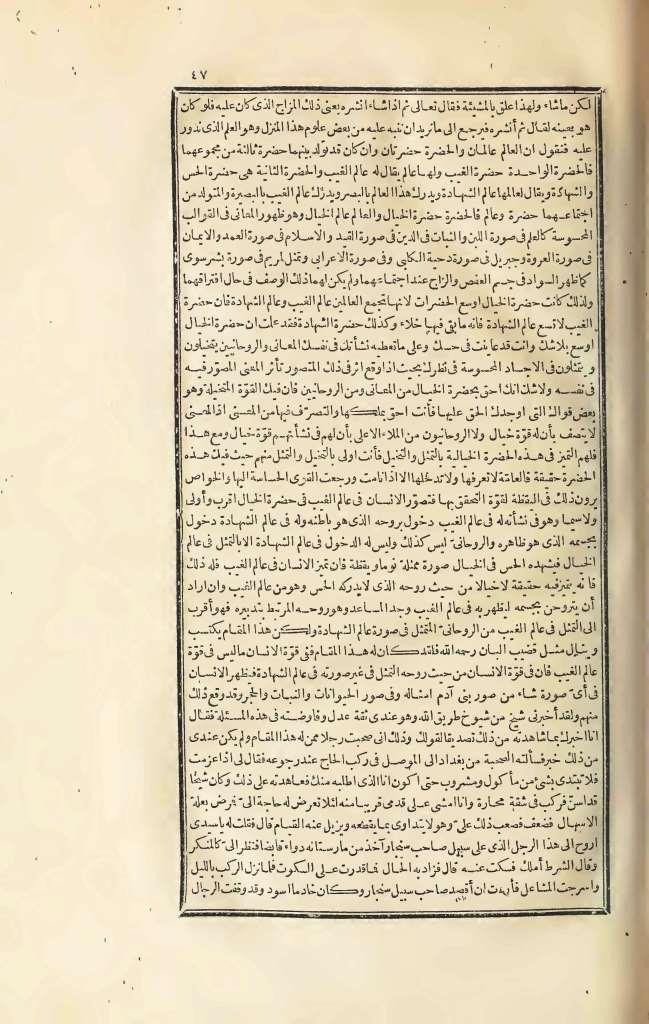 ٤٧
لكن ماشاء ولهذا علق بالمشيئة فقال تعالى ثم اذا شاء انشره يعنى ذلك المزاج الذى كان عليه فلو كان
هو بعينه لقال ثم أنشره فيرجع الى ما نريد ان ننبه عليه من بعض علوم هذا المنزل وهو العلم الذى ندور
عليه فنقول ان العالم عالمان والحضرة حضرتان وان كان قد تولد بينهما حضرة ثالثة من مجموعهما
فالحضرة الواحدة حضرة الغيب ولها عالم يقال له عالم الغيب والحضرة الثانية هى حضرة الحس
والشهادة ويقال لعالمها عالم الشهادة ويدرك هذا العالم بالبصر ويدرك عالم الغيب بالبصيرة والمتولد من
اجتماعهما حضرة وعالم فالحضرة حضرة الخيال والعالم عالم الخيال وهو ظهور المعانى فى القوالب
المحسوسة كالعلم فى صورة اللبن والثبات فى الدين فى صورة القيد والاسلام فى صورة العمد والايمان
فى صورة العروة وجبريل فى صورة دحية الكلبى وفى صورة الاعرابى وتمثل لمريم فى صورة بشر سوى
كما ظهر السواد فى جسم العفص والزاج عند اجتماعهما ولم يكن لهما ذلك الوصف فى حال افتراقهما
ولذلك كانت حضرة الخيال اوسع الحضرات لانها تجمع العالمين عالم الغيب وعالم الشهادة فان حضرة
الغيب لا تسع عالم الشهادة فانه ما بقى فيها خلاء وكذلك حضرة الشهادة فقد علمت ان حضرة الخيال
اوسع بلا شك وانت قد عاينت فى حسك وعلى ما تعطيه نشأتك فى نفسك المعانى والروحانيين يتخيلون
ويتمثلون فى الاجساد المحسوسة فى نظرك بحيث اذا وقع اثر فى ذلك المتصور تأثر المعنى المصور فيه
فى نفسه ولا شك انك احق بحضرة الخيال من المعانى ومن الروحانيين فان فيك القوة المتخيلة وهو
بعض قواك التى اوجدك الحق عليها فأنت احق بملكها والتصرف فيها من المعنى اذ المعنى
لا يتصف بأن له قوة خيال ولا الروحانيون من الملاء الاعلى بأن لهم فى نشأتهم قوة خيال ومع هذا
فلهم التميز فى هذه الحضرة الخيالية بالتمثل والتخيل فأنت اولى بالتخيل والتمثل منهم حيث فيك هذه
الحضرة حقيقة فالعامة لا تعرفها ولا تدخلها الا اذا نامت ورجعت القوى الحساسة اليها والخواص
يرون ذلك فى اليقظة لقوة التحقق بها فتصور الانسان فى عالم الغيب فى حضرة الخيال اقرب وأولى
ولا سيما وهو فى نشأته له فى عالم الغيب دخول بروحه الذى هو باطنه وله فى عالم الشهادة دخول
بجسمه الذى هو ظاهره والروحانى ليس كذلك وليس له الدخول فى عالم الشهادة الا بالتمثل فى عالم
الخيال فيشهده الحس فى الخيال صورة ممثلة نوما ويقظة فان تميز الانسان فى عالم الغيب فله ذلك
فانه يتميز فيه حقيقة لا خيالا من حيث روحه الذى لا يدركه الحس وهو من عالم الغيب وان اراد
أن يتروحن بجسمه ليظهر به فى عالم الغيب وجد المساعد وهو روحه المرتبط بتدبيره فهو أقرب
الى التمثل فى عالم الغيب من الروحانى المتمثل فى صورة عالم الشهادة ولكن هذا المقام يكتسب
وينال مثل قضيب البان رحمه الله فلقد كان له هذا المقام ففى قوة الانسان ما ليس فى قوة
عالم الغيب فان فى قوة الانسان من حيث روحه التمثل فى غير صورته فى عالم الشهادة فيظهر الانسان
فى أى صورة شاء من صور بنى آدم امثاله وفى صور الحيوانات والنبات والحجر وقد وقع ذلك
منهم ولقد أخبرنى شيخ من شيوخ طريق الله وهو عندى ثقة عدل وفاوضته فى هذه المسئلة فقال
انا اخبرك بما شاهدته من ذلك تصديقا لقولك وذلك انى صحبت رجلا ممن له هذا المقام ولم يكن عندى
من ذلك خبر فسألته الصحبة من بغداد الى الموصل فى ركب الحاج عند رجوعه فقال لى اذا عزمت
فلا تبتدئ بشئ من مأكول ومشروب حتى اكون انا الذى اطلبه منك فعاهدته على ذلك وكان شيخا
قد اسن فركب فى شقة محارة وانا امشى على قدمى قريبا منه لئلا تعرض له حاجة الى فمرض بعلة
الاسهال فضعف فصعب ذلك على وهو لا يتداوى بما يقطعه ويزيل عنه القيام قال فقلت له يا سيدى
اروح الى هذا الرجل الذى على سبيل صاحب سنجار وآخذ من مارستانه دواء قابضا فنظر الى كالمنكر
وقال الشرط أملك فسكت عنه قال فزاد به الحال فما قدرت على السكوت فلما نزل الركب بالليل
واسرجت المشاعل فأردت ان أقصد صاحب سبيل سنجار وكان خادما اسود وقد وقفت الرجال